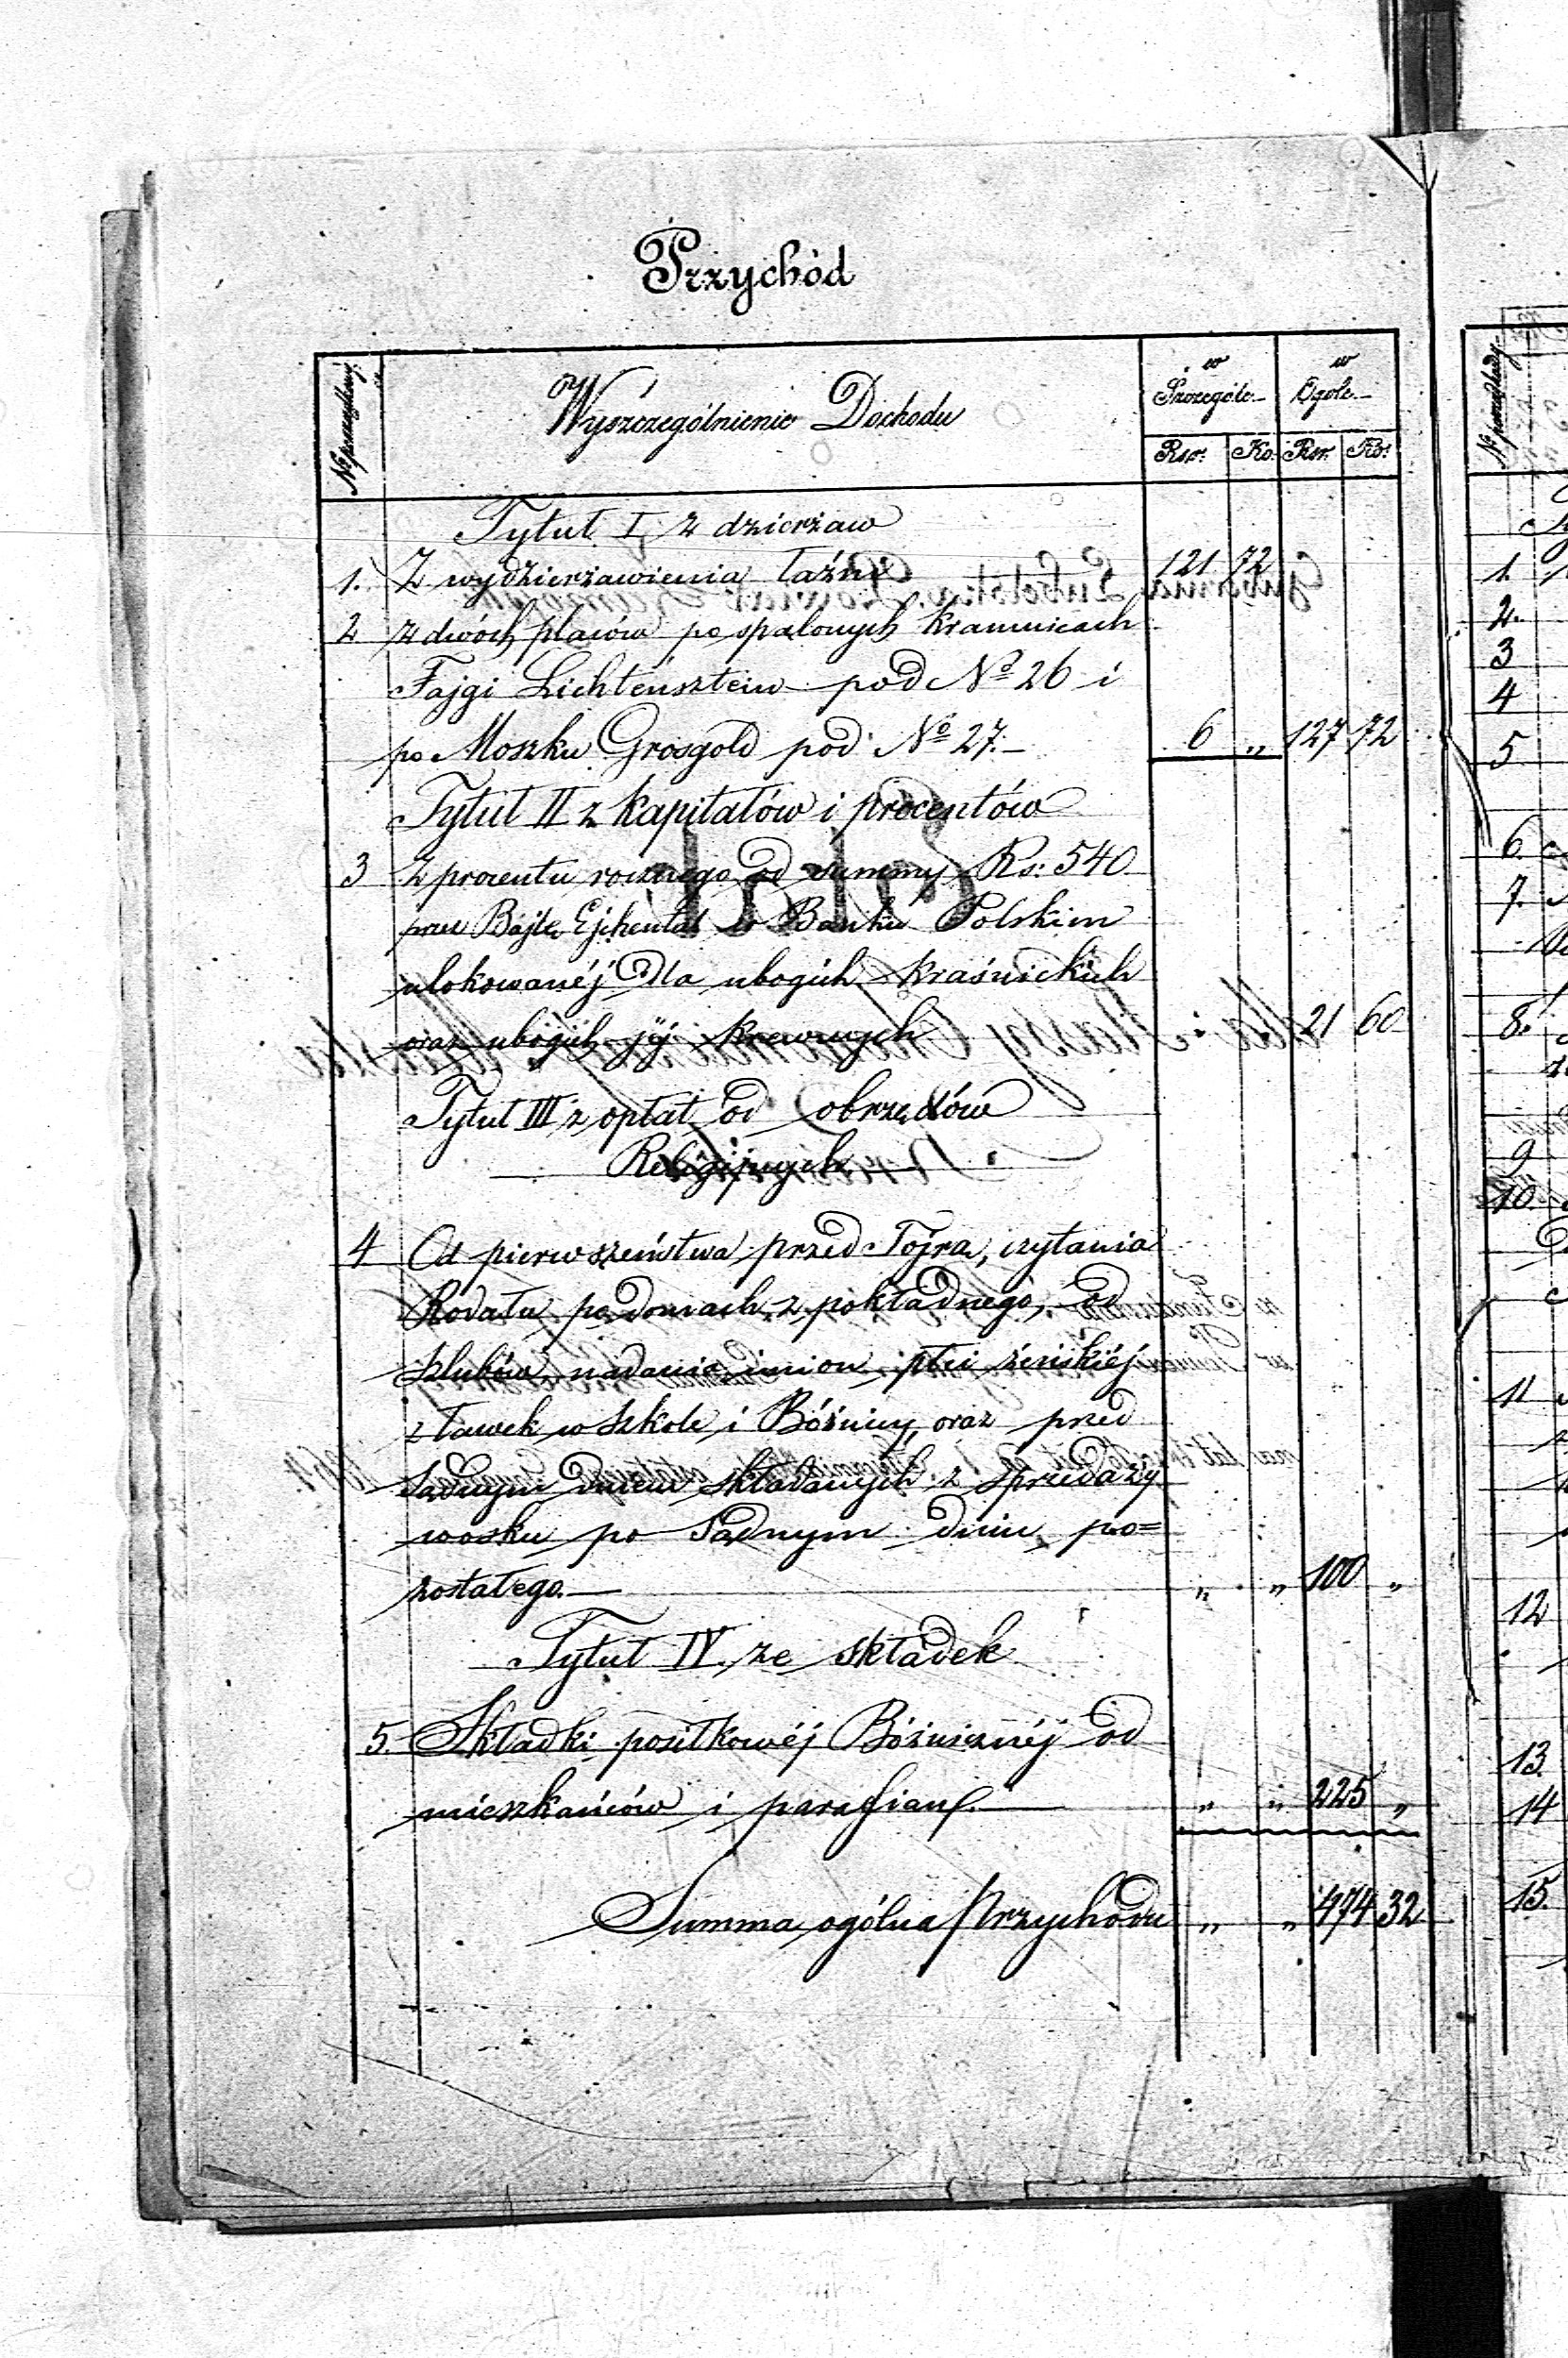 Przychód
№ porządkowy
Wyszczególnienie Dochodu
w Szczególe
w Ogóle
Rsr. Ko. Rsr. Ko.
Tytuł I, z dzierżaw
1. Z wydzierżawienia łaźni 121 72
2 z dwóch placów po spalonych kramnicach
Fajgi Lichtensztein pod № 26 i
po Moszku Grosgold pod № 27. 6 „ 127 72
Tytuł II z kapitałów i procentów
3 z procentu rocznego od summy Rs: 540
przez Bajlę Ejchental w Banku Polskim
ulokowanéj dla ubogich kraśnickich
oraz ubogich jéj krewnych 21 60
Tytuł III z opłat od obrzędów
Religijnych
4 Od pierwszeństwa przed Tojra, czytania
Rodału po domach, z pokładnego, od
szlubów, nadania imion płci żeńskiéj
z ławek w szkole i Bóżnicy, oraz przed
Sądnym dniem składanych z sprzedaży
wosku po Sądnym dniu po=
zostałego. „ „ 100 „
Tytuł IV. ze składek
5. Składki posiłkowéj Bóżnicznéj od
mieszkańców i parafian „ „ 225 „
Summa ogólna Przychodu „ „ 474 32
1.
2.
3
4
5
6.
7.
8.
9
10.
11
12
13.
14
15.